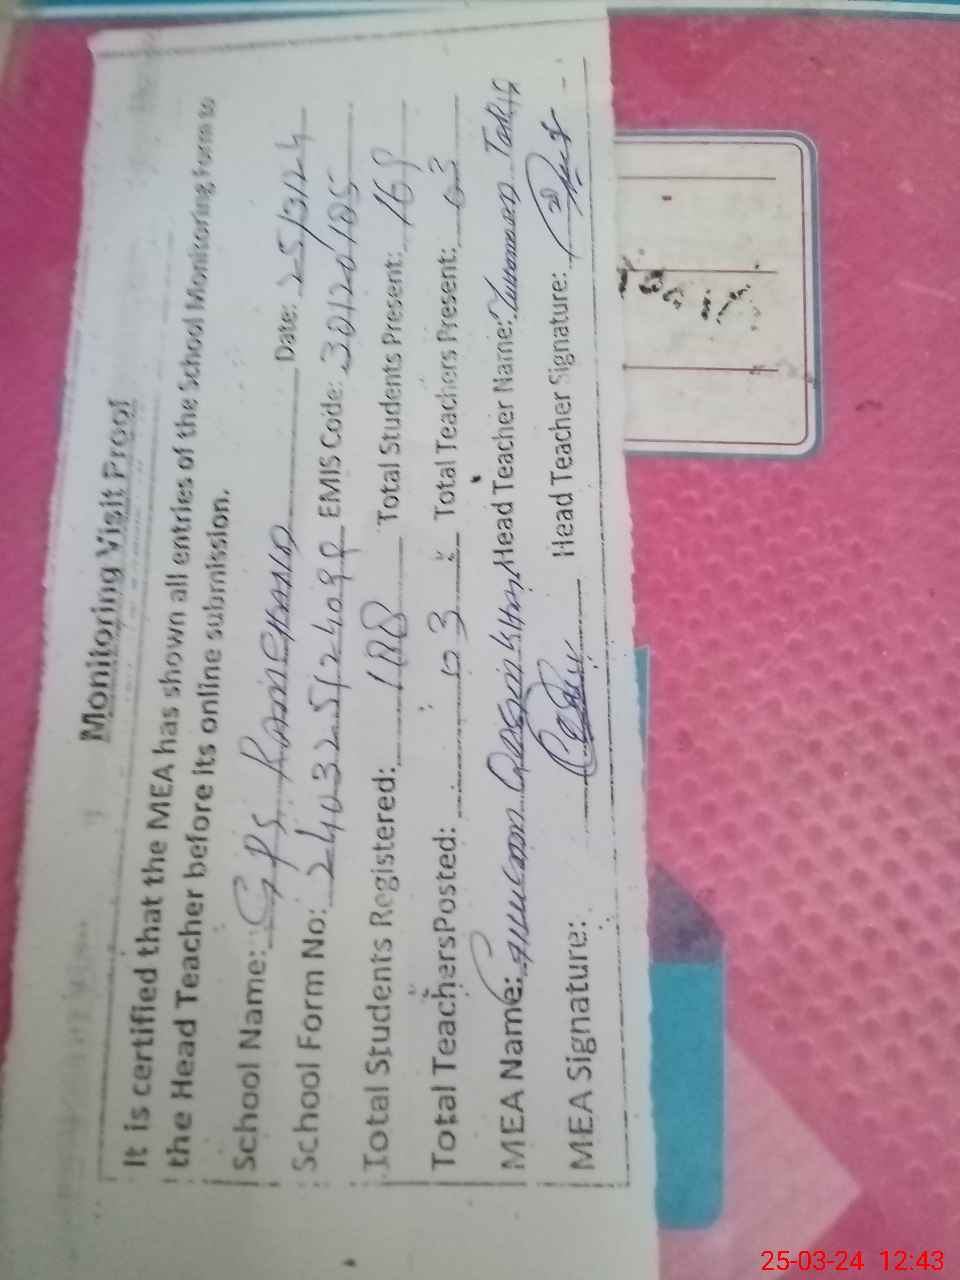 Monitoring Visit Proof
It is certified that the MEA has shown all entries of the School Monitoring Form to
the Head Teacher before its online submission.
School Name: GPS Date: 25/3/24
School Form No: EMIS Code: 30120105
Total Students Registered: 188 Total Students Present: 168
Total TeachersPosted: 03 Total Teachers Present: 03
MEA Name: Head Teacher Name:
MEA Signature: Head Teacher Signature:
25-03-24 12:43